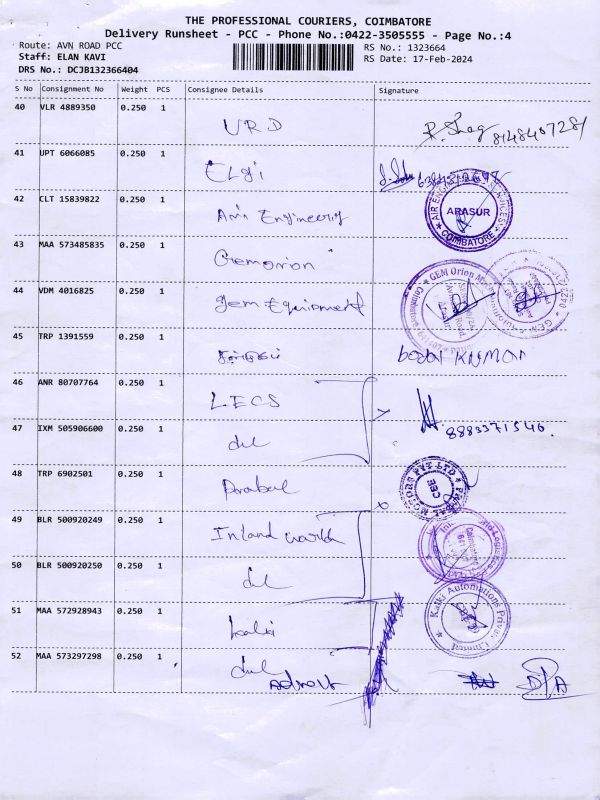 THE PROFESSIONAL COURIERS, COIMBATORE
Delivery Runsheet - PCC - Phone No.:0422-3505555 - Page No.:4
Route: AVN ROAD PCC RS No.: 1323664
Staff: ELAN KAVI RS Date: 17-Feb-2024
DRS No.: DCJB132366404
S No Consignment No Weight PCS Consignee Details Signature
40 VLR 4889350 0.250 1
URD 8148407281
41 UPT 6066085 0.250 1
ELgi
42 CLT 15839822 0.250 1
Engineering ARASUR COIMBATORE
43 MAA 573485835 0.250 1
Gemorion
44 VDM 4016825 0.250 1
gem Equipment
45 TRP 1391559 0.250 1
KUMAR
46 ANR 80707764 0.250 1
LECS
47 IXM 505906600 0.250 1
8883371546
48 TRP 6902501 0.250 1
MOTORS PVT LTD CBE
49 BLR 500920249 0.250 1
Inland world
50 BLR 500920250 0.250 1
51 MAA 572928943 0.250 1
Kalki Automations Private Limited
52 MAA 573297298 0.250 1
D/A